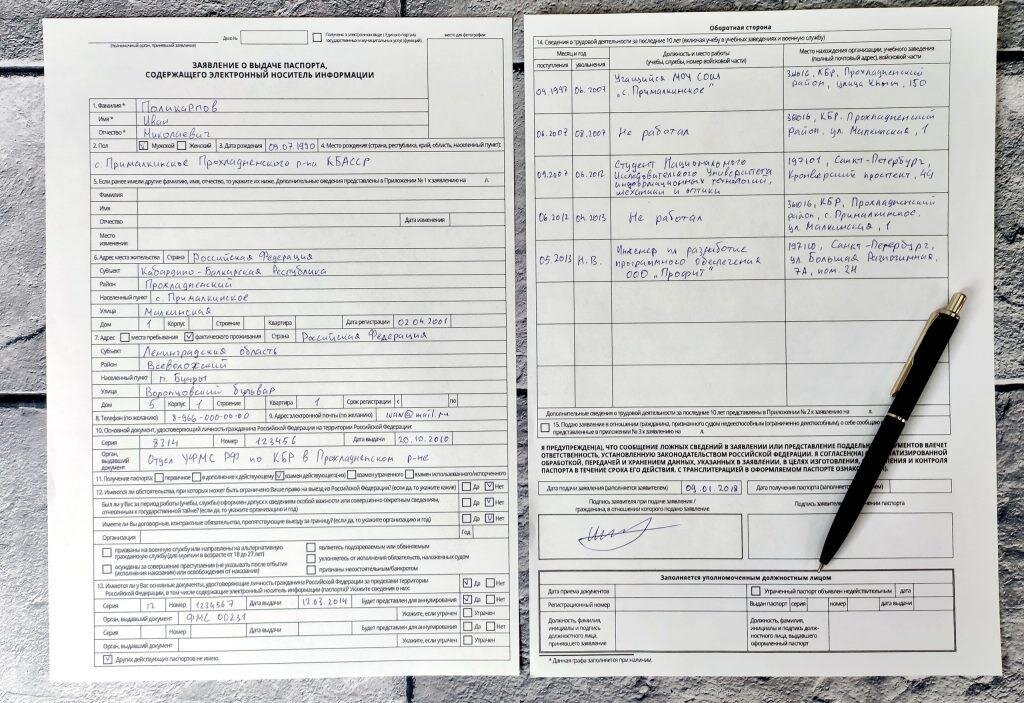 (полномочный орган, принявший заявление)
Дело №
Получено в электронном виде с Единого портала
государственных и муниципальных услуг (функций)
место для фотографии
ЗАЯВЛЕНИЕ О ВЫДАЧЕ ПАСПОРТА,
СОДЕРЖАЩЕГО ЭЛЕКТРОННЫЙ НОСИТЕЛЬ ИНФОРМАЦИИ
1. Фамилия * Поликарпов
Имя * Иван
Отчество * Николаевич
2. Пол Мужской Женский 3. Дата рождения 09.07.1990 4. Место рождения (страна, республика, край, область, населенный пункт):
с. Прималкинское Прохладненского р-на КБАССР
5. Если ранее имели другие фамилию, имя, отчество, то укажите их ниже. Дополнительные сведения представлены в Приложении № 1 к заявлению на л.
Фамилия
Имя
Отчество Дата изменения
Место
изменения
6. Адрес места жительства Страна Российская Федерация
Субъект Кабардино-Балкарская Республика
Район Прохладненский
Населенный пункт с. Прималкинское
Улица Малкинская
Дом 1 Корпус Строение Квартира Дата регистрации 02.04.2001
7. Адрес места пребывания фактического проживания Страна Российская Федерация
Субъект Ленинградская область
Район Всеволожский
Населенный пункт п. Бугры
Улица Воронцовский бульвар
Дом 5 Корпус 1 Строение Квартира 1 Срок регистрации с по
8. Телефон (по желанию) 8-966-000-00-00 9. Адрес электронной почты (по желанию) ivan@mail.ru
10. Основной документ, удостоверяющий личность гражданина Российской Федерации на территории Российской Федерации:
Серия 8314 Номер 123456 Дата выдачи 20.10.2010
Орган, выдавший документ Отдел УФМС РФ по КБР в Прохладненском р-не
11. Получение паспорта: первичное в дополнение к действующему взамен действующего взамен утраченного взамен испорченного
12. Имеются ли обстоятельства, при которых может быть ограничено Ваше право на выезд из Российской Федерации? (если да, то укажите какие): Да Нет
Был ли у Вас за период работы (учебы, службы) оформлен допуск к сведениям особой важности или совершенно секретным сведениям,
отнесенным к государственной тайне? (если да, то укажите организацию и год) Да Нет
Имеете ли Вы договорные, контрактные обязательства, препятствующие выезду за границу? (если да, то укажите организацию и год) Да Нет
Организация Год
призваны на военную службу или направлены на альтернативную
гражданскую службу (для мужчин в возрасте от 18 до 27 лет)
являетесь подозреваемым или обвиняемым
уклоняетесь от исполнения обязательств, наложенных судом
осуждены за совершение преступления (не указывать после отбытия
(исполнения наказания) или освобождения от наказания)
признаны несостоятельным/банкротом
13. Имеются ли у Вас основные документы, удостоверяющие личность гражданина Российской Федерации за пределами территории
Российской Федерации, в том числе содержащие электронный носитель информации (паспорта)? Укажите сведения о них: Да Нет
Серия 12 Номер 1234567 Дата выдачи 12.03.2014 Будет представлен для аннулирования Да Нет
Орган, выдавший документ ФМС 00231 Укажите, если утрачен Утрачен
Серия Номер Дата выдачи Будет представлен для аннулирования Да Нет
Орган, выдавший документ Укажите, если утрачен Утрачен
Других действующих паспортов не имею.
Оборотная сторона
14. Сведения о трудовой деятельности за последние 10 лет (включая учебу в учебных заведениях и военную службу)
Месяц и год
поступления увольнения
Должность и место работы
(учебы, службы, номер войсковой части)
Место нахождения организации, учебного заведения
(полный почтовый адрес), войсковой части
09.1997 06.2007 Учащийся МОУ СОШ
"с. Прималкинское"
36016, КБР, Прохладненский
район, улица 150
06.2007 08.2007 Не работал
36016, КБР, Прохладненский
район, ул. Малкинская, 1
09.2007 06.2012 Студент Национального
Исследовательского Университета
информационных технологий,
механики и оптики
197101, Санкт-Петербург,
Кронверкский проспект, 49
06.2012 04.2013 Не работал
36016, КБР, Прохладненский
район, с. Прималкинское,
ул. Малкинская, 1
05.2013 Н.В. Инженер по разработке
программного обеспечения
ООО "Профит"
197110, Санкт-Петербург,
ул. Большая Разночинная,
7А, пом. 2Н
Дополнительные сведения о трудовой деятельности за последние 10 лет представлены в Приложении № 2 к заявлению на л.
15. Подаю заявление в отношении гражданина, признанного судом недееспособным (ограниченно дееспособным), о себе сообщаю
представленные в приложении № 3 к заявлению на л.
Я ПРЕДУПРЕЖДЕН(А), ЧТО СООБЩЕНИЕ ЛОЖНЫХ СВЕДЕНИЙ В ЗАЯВЛЕНИИ ИЛИ ПРЕДСТАВЛЕНИЕ ПОДДЕЛЬНЫХ ДОКУМЕНТОВ ВЛЕЧЕТ
ОТВЕТСТВЕННОСТЬ, УСТАНОВЛЕННУЮ ЗАКОНОДАТЕЛЬСТВОМ РОССИЙСКОЙ ФЕДЕРАЦИИ. Я СОГЛАСЕН(А)
ОБРАБОТКОЙ, ПЕРЕДАЧЕЙ И ХРАНЕНИЕМ ДАННЫХ, УКАЗАННЫХ В ЗАЯВЛЕНИИ, В ЦЕЛЯХ ИЗГОТОВЛЕНИЯ, И КОНТРОЛЯ
ПАСПОРТА В ТЕЧЕНИЕ СРОКА ЕГО ДЕЙСТВИЯ. С ТРАНСЛИТЕРАЦИЕЙ В ОФОРМЛЯЕМОМ ПАСПОРТЕ
Дата подачи заявления (заполняется заявителем) 09.01.2018 Дата получения паспорта (заполняется
Подпись заявителя /
гражданина, в отношении которого подано заявление
Подпись заявителя паспорта
Заполняется уполномоченным должностным лицом
Дата приема документов Утраченный паспорт объявлен недействительным дата
Регистрационный номер Выдан паспорт серия номер дата выдачи
Должность, фамилия,
инициалы и подпись
должностного лица,
принявшего заявление
Должность, фамилия,
инициалы и подпись должностного лица, выдавшего
оформленный паспорт
* Данная графа заполняется при наличии.